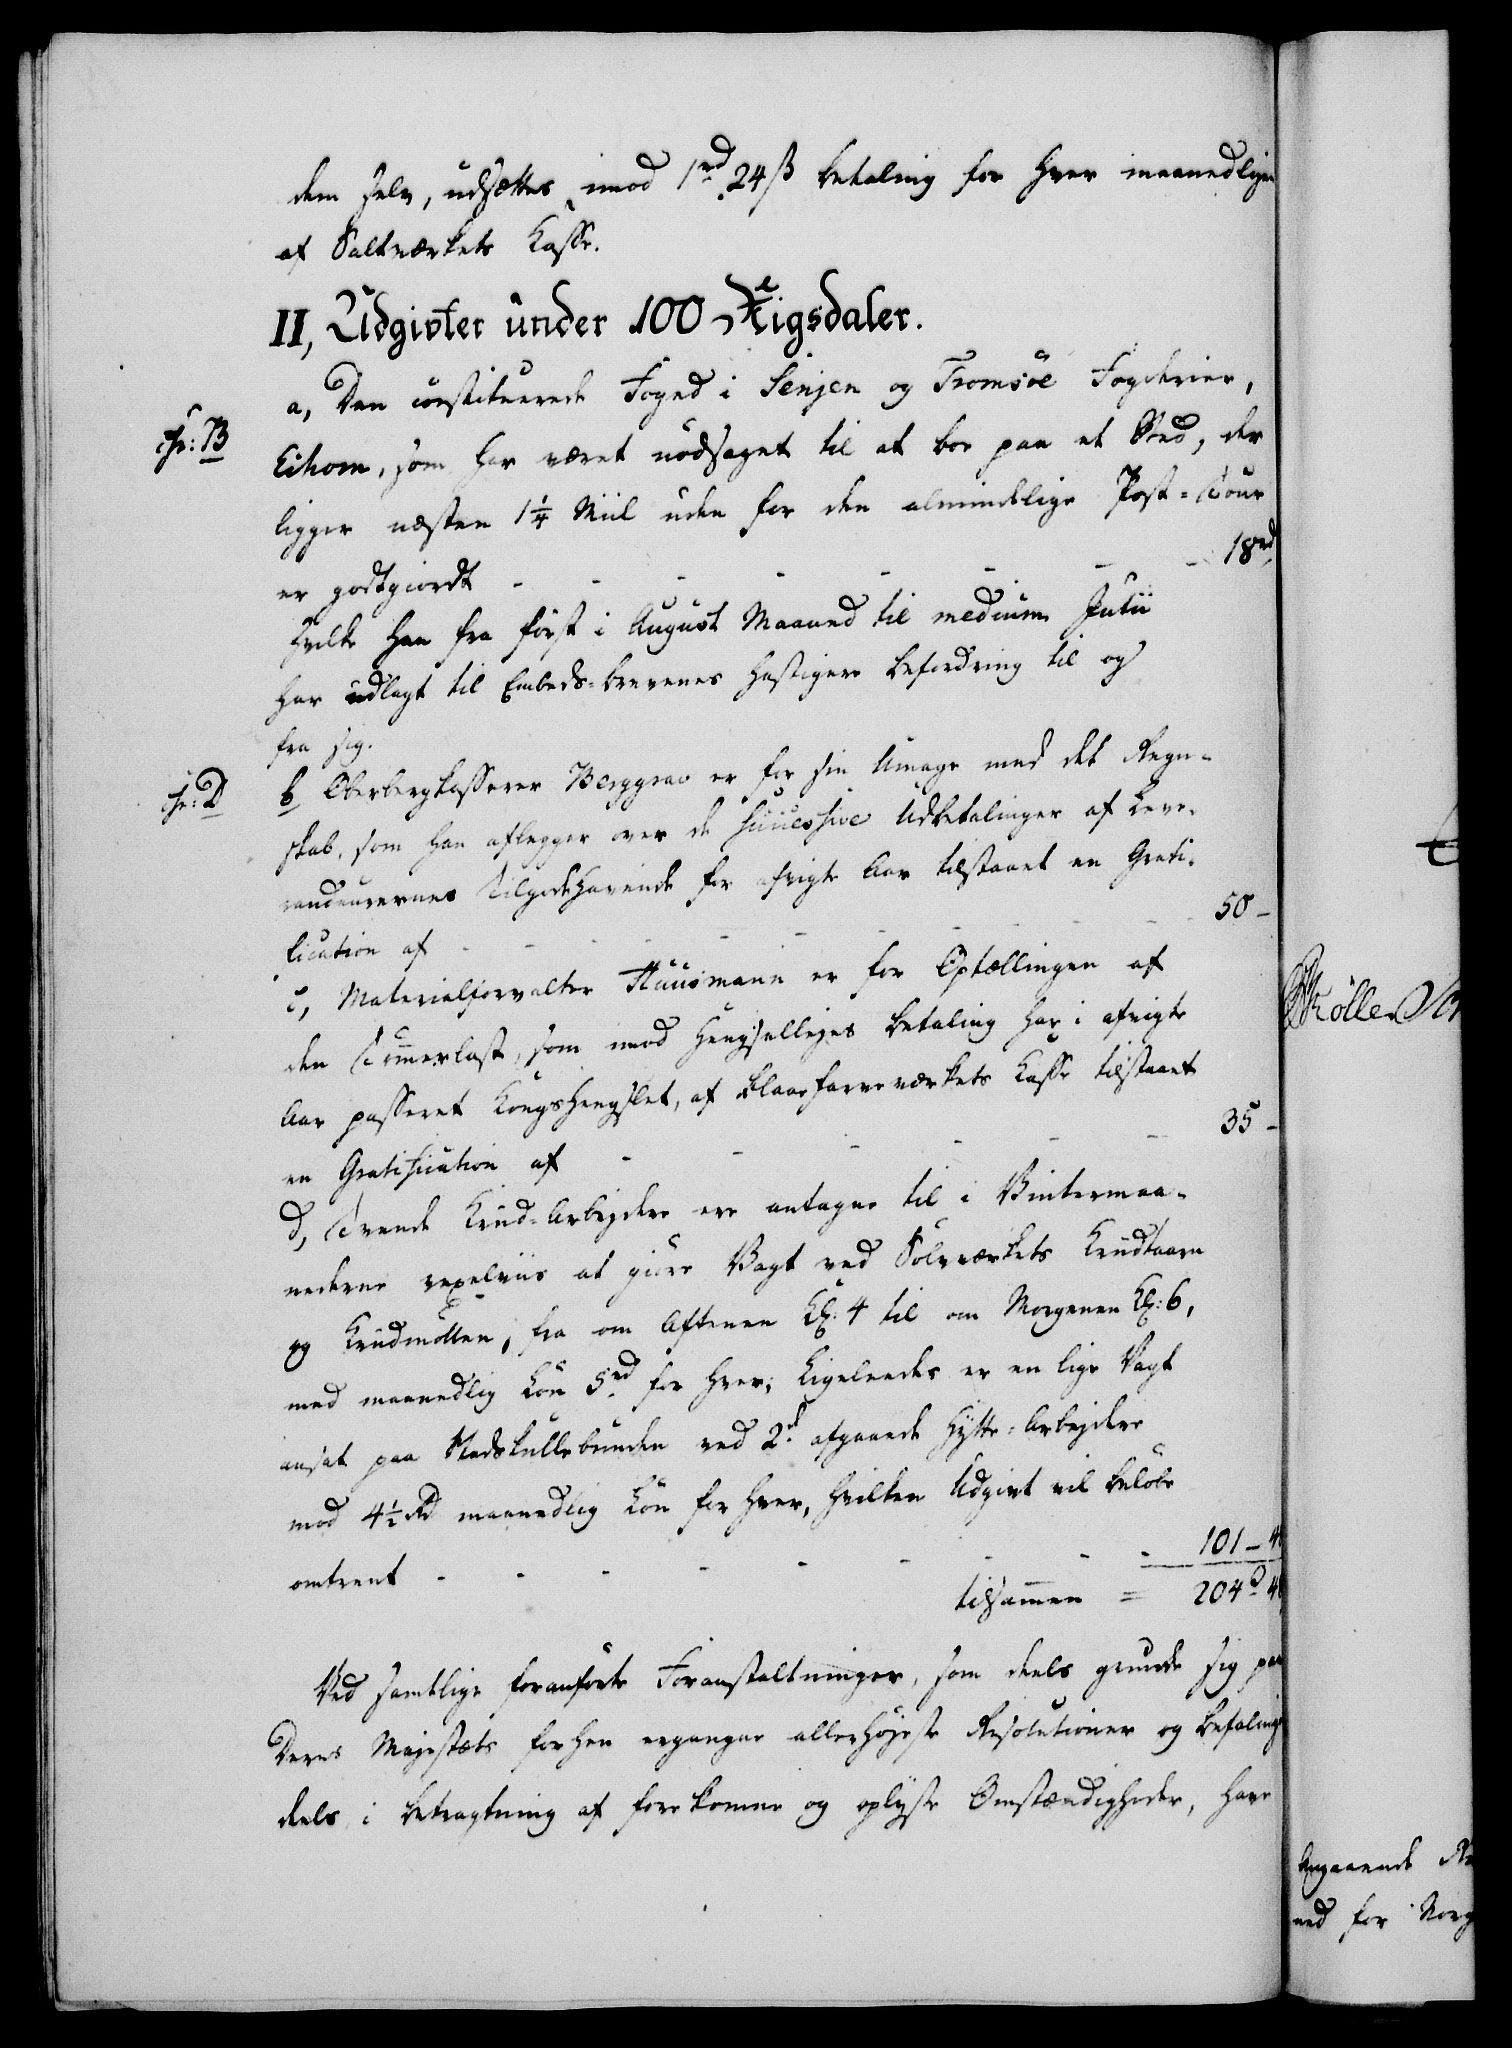 dem selv, udsættes imod 1rd 24 ß betaling for hver maanedligen
af Saltværkets Kasse.
II, Udgivter under 100 Rigsdaler.
a, Den constituerede Foged i Senjen og Tromsøe Fogderier,
chr: B
Eihom, som har været nødsaget til at boe paa et Sted, der
ligger næsten 1¼ Miil uden for den almindelige Post-Tour
er godtgiordt - - - - - - - 18rd
hvilke han fra først i August Maaned til medium Julii
har udlagt til Embeds-brevenes hastigere befordring til og
fra sig.
chr: D
b Oberbergkasserer Berggrav er for sin Umage med det Regn-
skab, som han aflegger over de successive Udbetalinger af Leve-
randeurernes Tilgodehavende for afvigte Aar tilstaaet en Grati-
fication af - - - - - - - 50 -
c, Materialforvalter Huusmann er for Optællingen af
den Tømmerlast, som imod hengselleyes betaling har i afvigte
Aar passeret Kongshengslet, af blaafarveværkets Kasse tilstaaet
en Gratification af - - - - - 35 -
d, Tvende Krud-Arbejdere ere antagne til i Vintermaa-
nederne vexelviis at giøre Vagt ved Sølvværkets Krudtaarn
og Krudmøllen, fra om Aftenen Kl: 4 til om Morgenen Kl: 6,
med maanedlig Løn 5rd for hver; Ligeleedes er en lige Vagt
ansat paa ved 2de afgaaede Hytte-Arbejdere
mod 4½ Rd maanedlig Løn for hver, hvilken Udgivt vil beløbe
omtrent - - - - - - - 101 - 4
tilsammen = 204d 4
Ved samtlige foranførte Foranstaltninger, som deels grunde sig paa
Deres Majestæts forhen ergangne allerhøjeste Resolutioner og befalinger
deels i betragtning af forekomne og oplyste Omstændigheder, have
Møller
Angaaende
ved for Norg